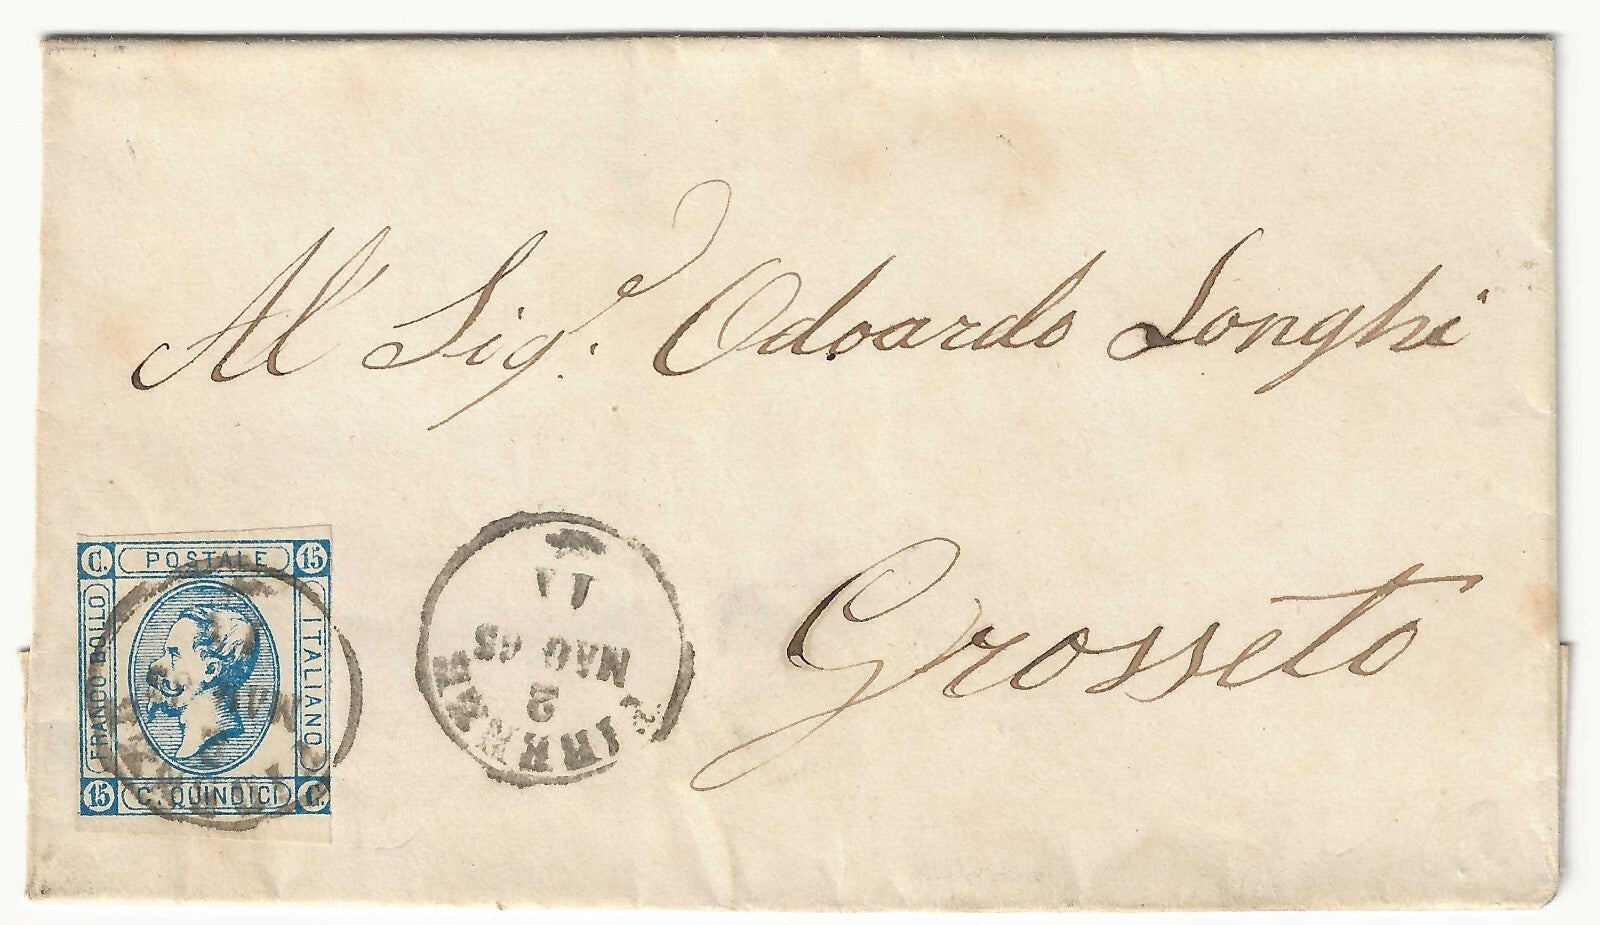 Al Sig.r Odoardo Longhi
Grosseto
C. POSTALE 15
FRANCO BOLLO
ITALIANO
15 C. QUINDICI C.
FIRENZE
2
MAG 63
11
MAG